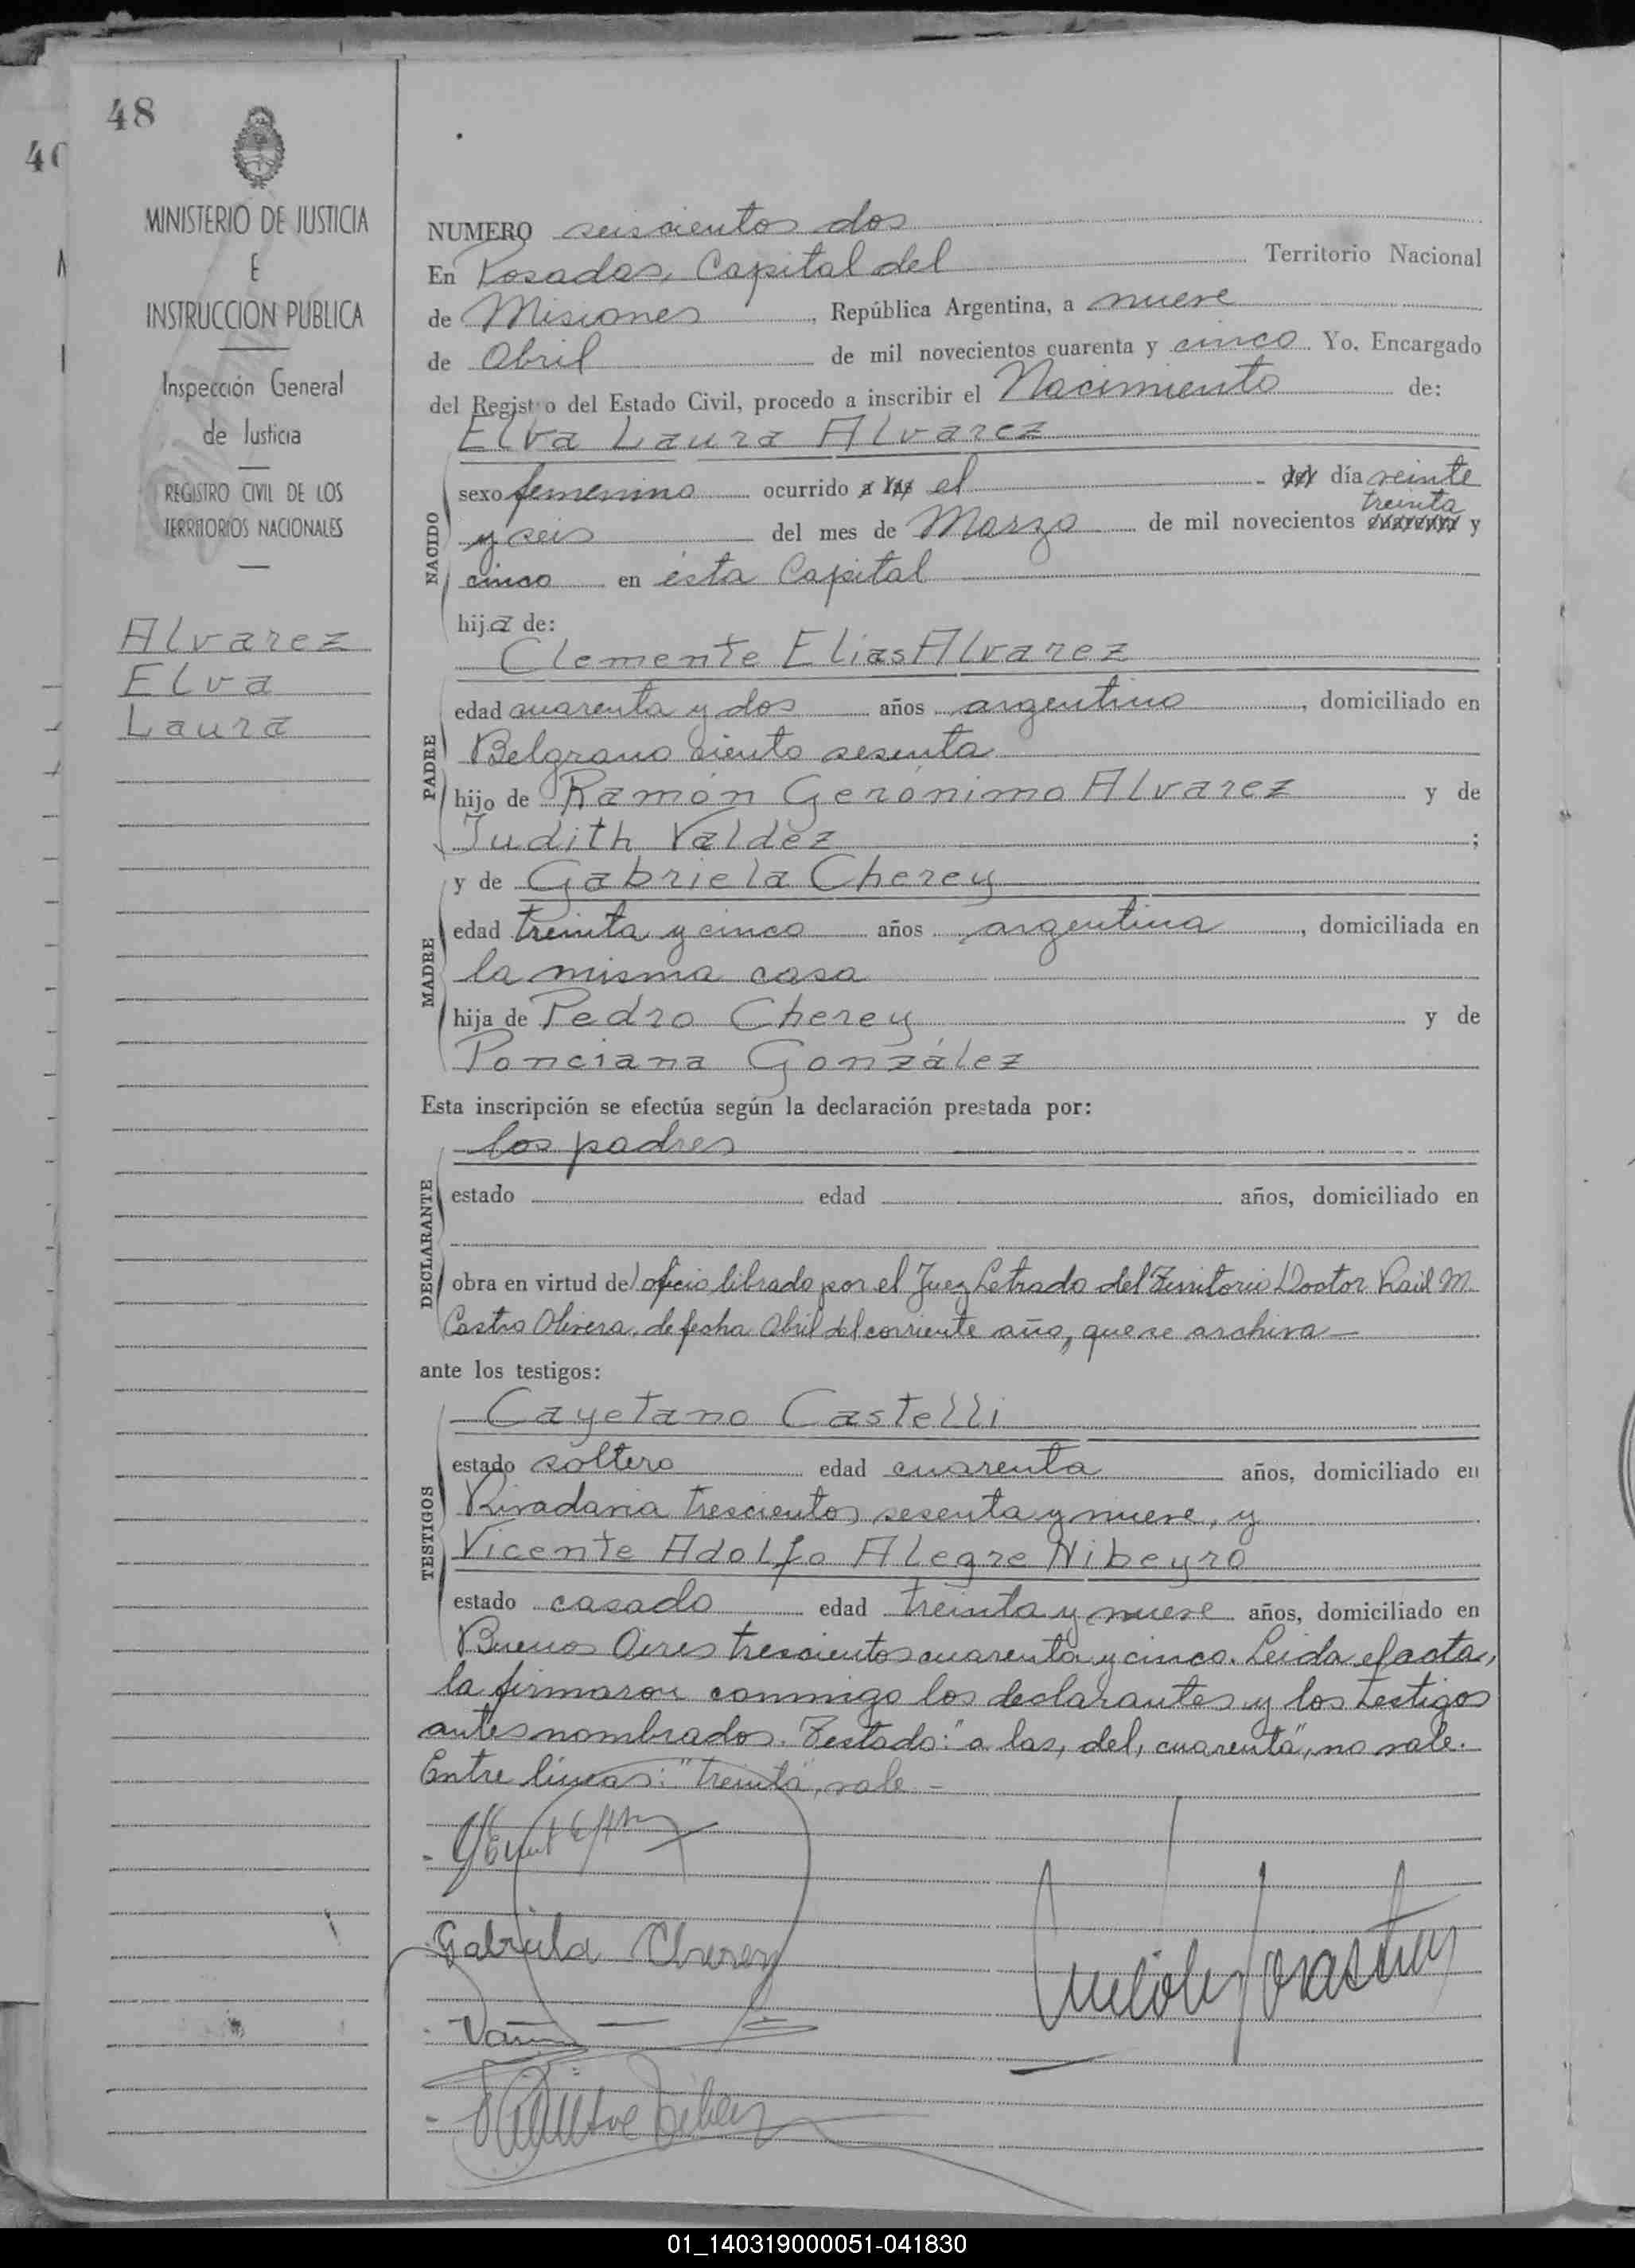 48
40
MINISTERIO DE JUSTICIA
E
INSTRUCCION PUBLICA
Inspección General
de Justicia
REGISTRO CIVIL DE LOS
TERRITORIOS NACIONALES
Alvarez
Elva
Laura
NUMERO seiscientos dos
En Posadas, Capital del Territorio Nacional
de Misiones, República Argentina, a nueve
de Abril de mil novecientos cuarenta y cinco Yo, Encargado
del Registro del Estado Civil, procedo a inscribir el Nacimiento de:
Elva Laura Alvarez
NACIDO
sexo femenino ocurrido a las el del día veinte
treinta
y seis del mes de Marzo de mil novecientos cuarenta y
cinco en ésta Capital
hija de:
Clemente Elias Alvarez
PADRE
edad cuarenta y dos años argentino, domiciliado en
Belgrano ciento sesenta
hijo de Ramón Gerónimo Alvarez y de
Judith Valdéz ;
y de Gabriela Cherey
MADRE
edad treinta y cinco años argentina, domiciliada en
la misma casa
hija de Pedro Cherey y de
Ponciana González
Esta inscripción se efectúa según la declaración prestada por:
los padres
DECLARANTE
estado edad años, domiciliado en
obra en virtud del oficio librado por el Juez Letrado del Territorio Doctor Raúl M.
Castro Olivera, de fecha Abril del corriente año, que se archiva
ante los testigos:
Cayetano Castelli
TESTIGOS
estado soltero edad cuarenta años, domiciliado en
Rivadavia trescientos sesenta y nueve, y
Vicente Adolfo Alegre Nibeyro
estado casado edad treinta y nueve años, domiciliado en
Buenos Aires trescientos cuarenta y cinco. Leida el acta,
la firmaron conmigo los declarantes y los testigos
antes nombrados. Testado: "a las, del, cuarenta", no vale.
Entre líneas: "treinta", vale -
Gabriela Cherey
01_140319000051-041830